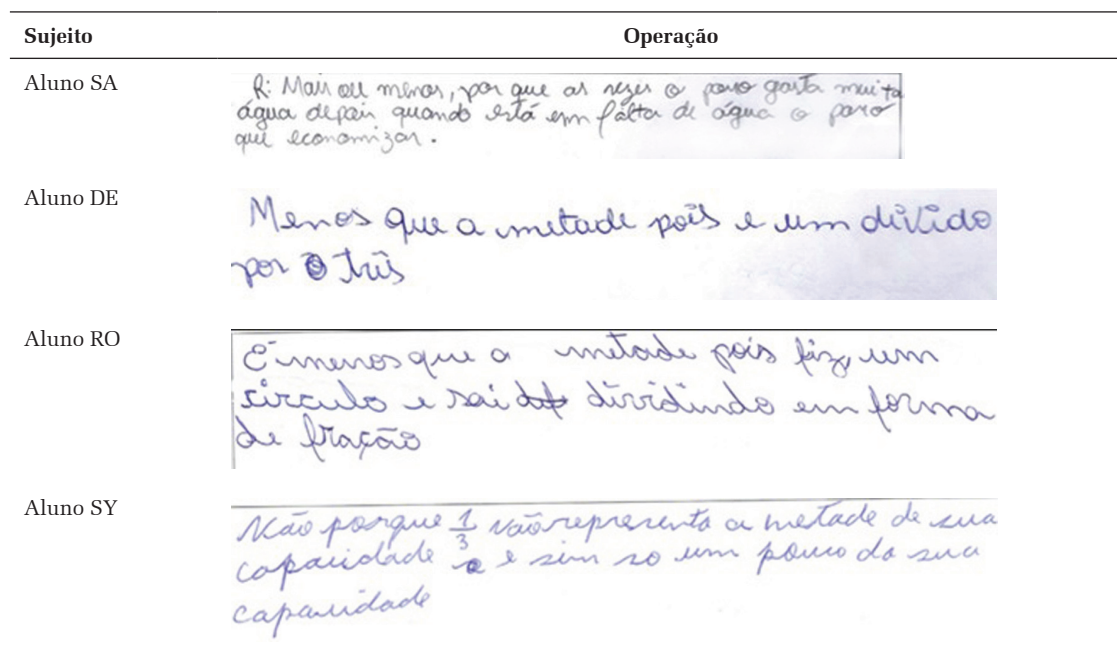 Sujeito Operação
Aluno SA
R: Mais ou menos, por que as vezes o povo gasta muita
água depois quando está em falta de água o povo
que economizar.
Aluno DE
Menos que a metade pois e um divido
por o três
Aluno RO
É menos que a metade pois fiz, um
circulo e sai dividindo em forma
de fração
Aluno SY
Não porque 1/3 não representa a metade de sua
capacidade e sim so um pouco da sua
capacidade